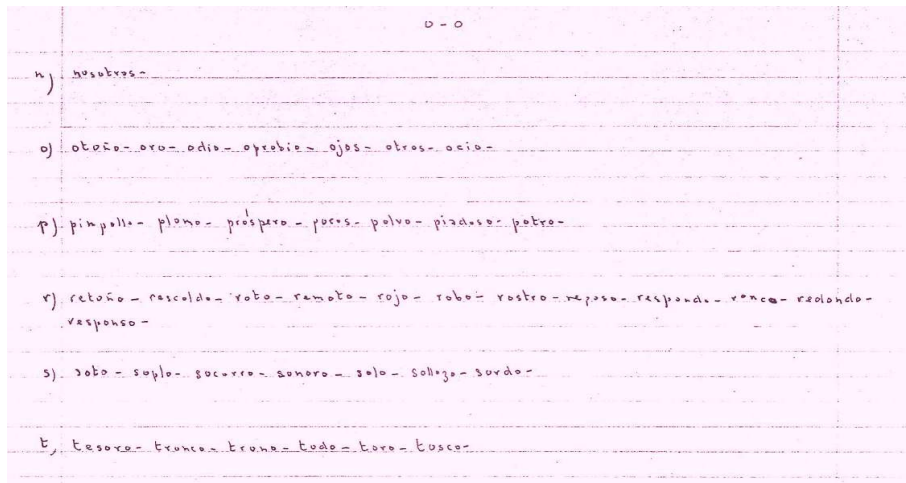 o - o
n) nosotros -
o) otoño - oro - odio - oprobio - ojos - otros - ocio -
p) pimpollo - plomo - próspero - pocos - polvo - piadoso - potro -
r) retoño - rescoldo - roto - remoto - rojo - robo - rostro - reposo - respondo - ronco - redondo -
responso -
s) soto - soplo - socorro - sonoro - solo - sollozo - sordo -
t) tesoro - tronco - trono - todo - toro - tosco -